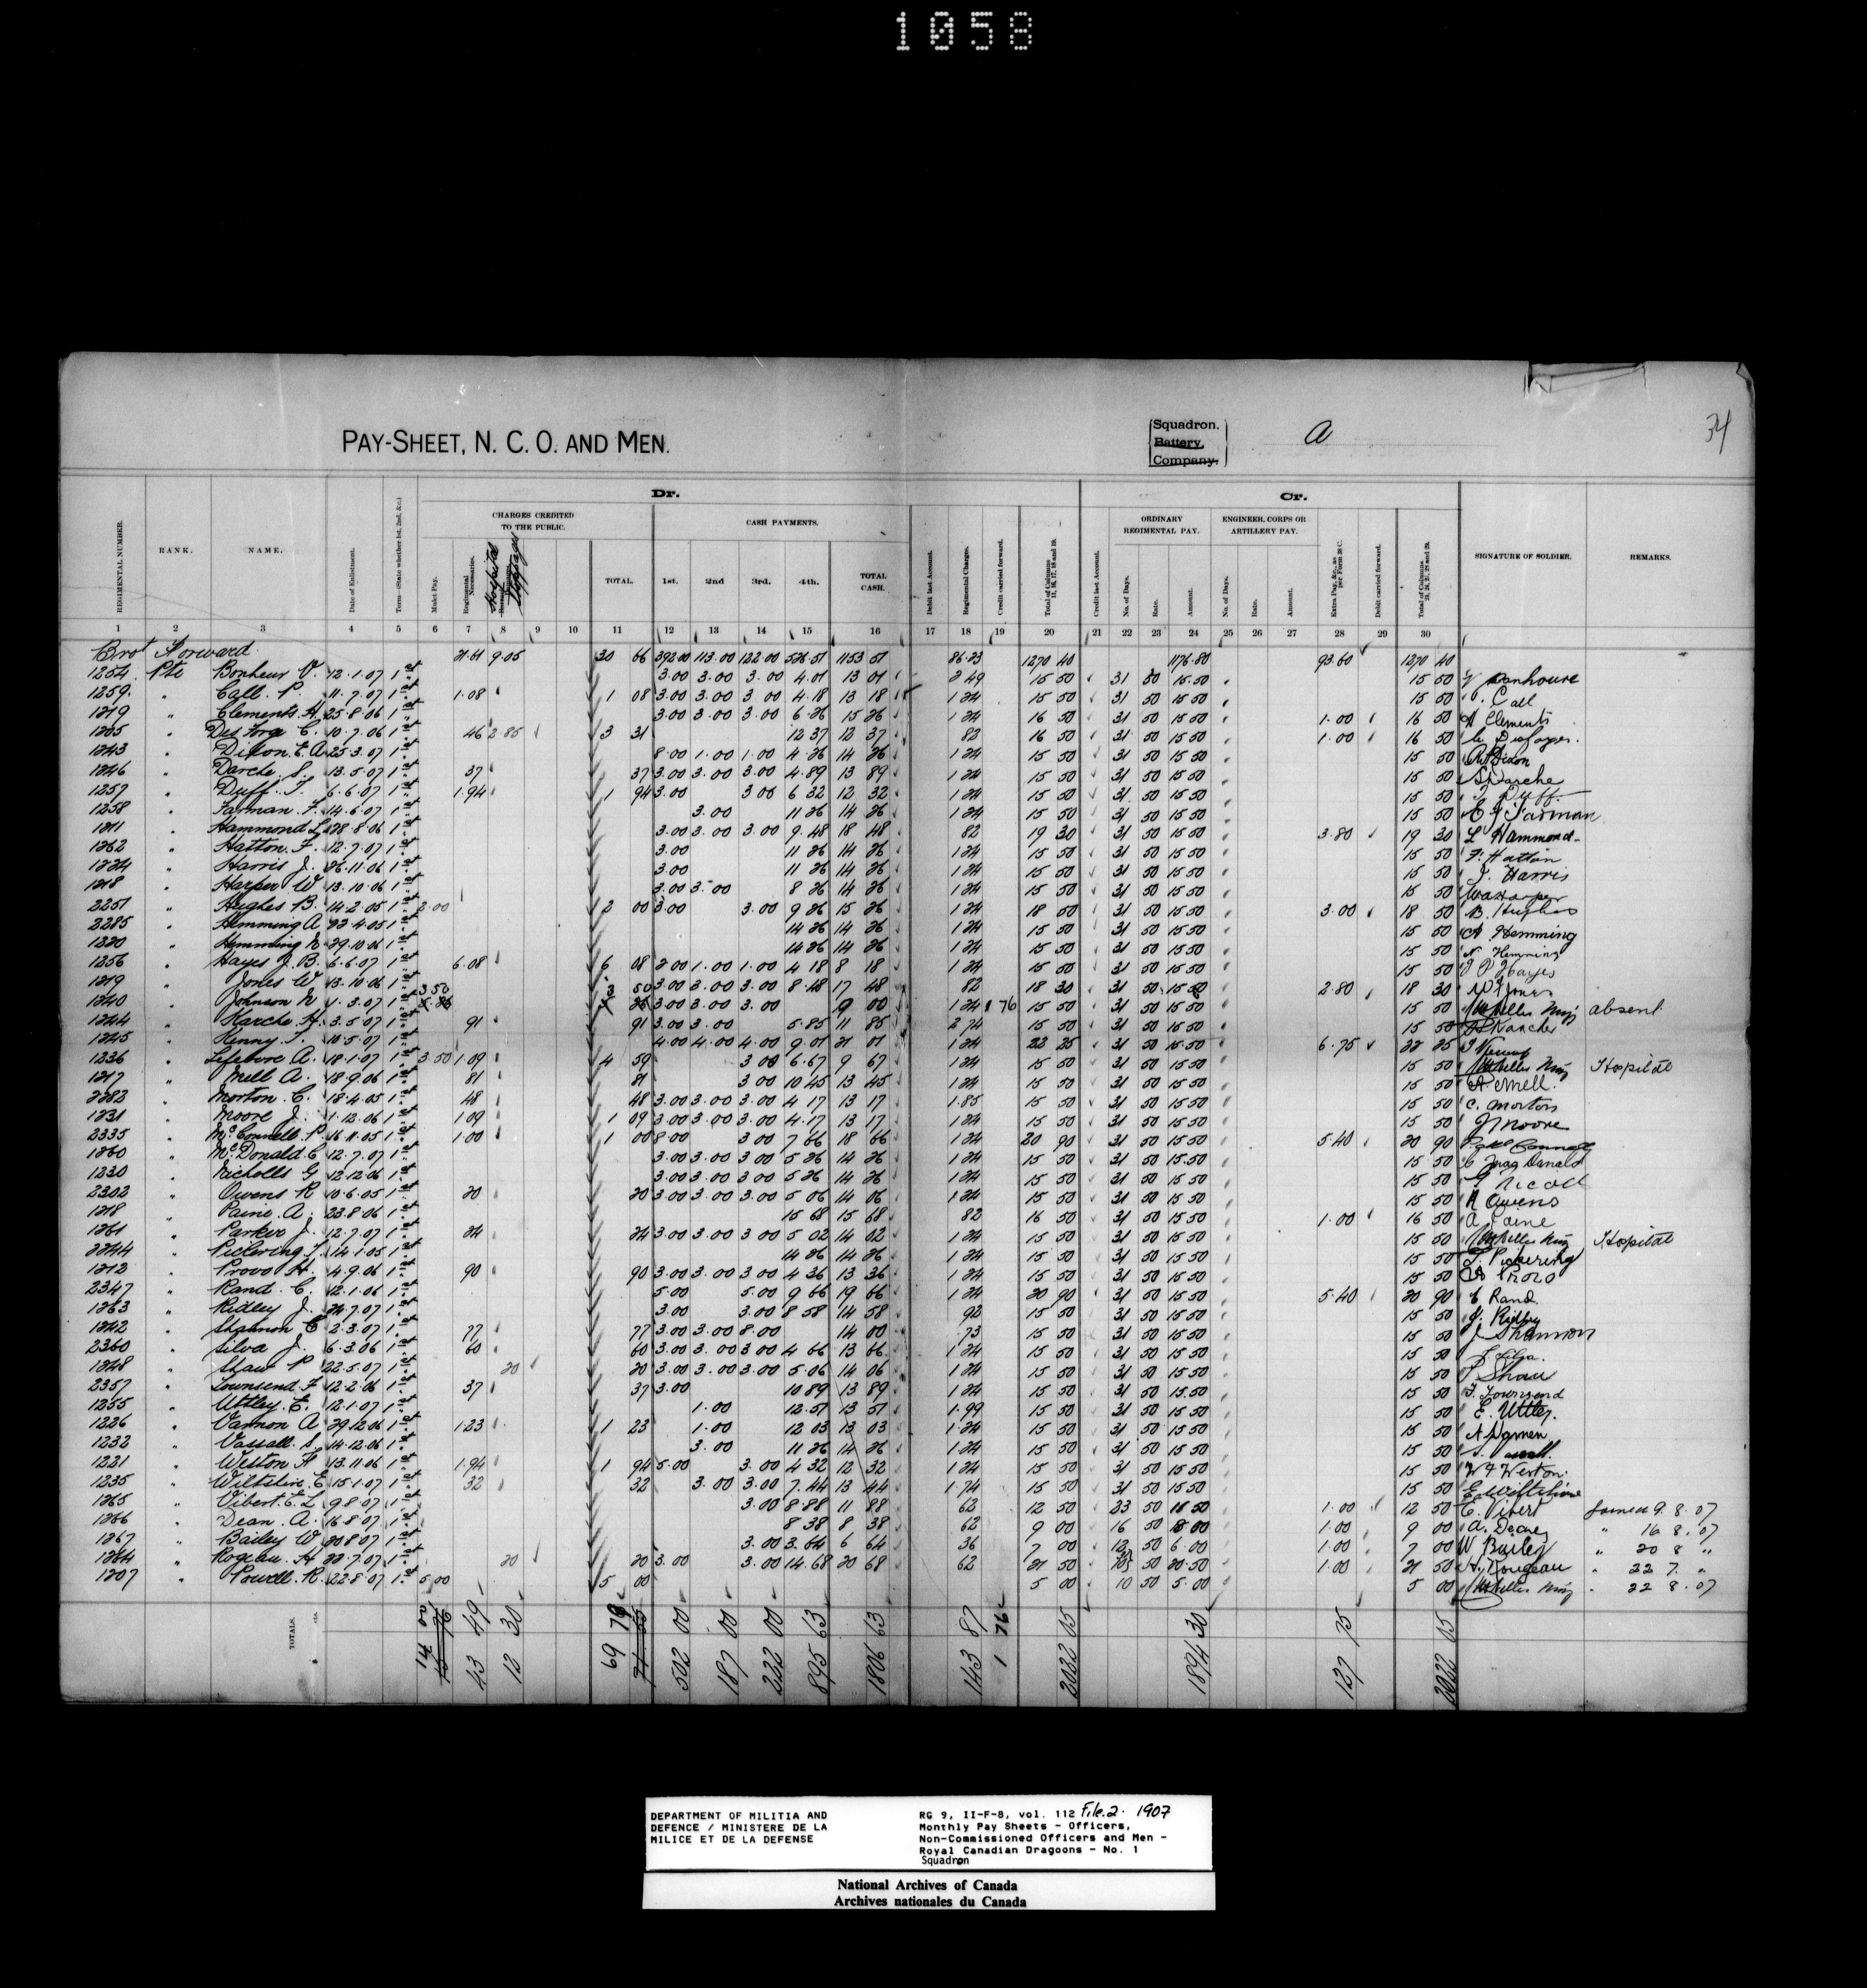 1058
PAY-SHEET, N. C. O. AND MEN.
Squadron.
Battery,
Company.
A
34
Dr.
Cr.
CHARGES CREDITED
TO THE PUBLIC.
CASH PAYMENTS.
ORDINARY
REGIMENTAL PAY.
ENGINEER, CORPS OR
ARTILLERY PAY.
REGIMENTAL NUMBER. RANK. NAME. Date of Enlistment. Term—State whether 1st, 2nd, &c.) Mulct Pay. Regimental Necessaries. Hospital Stoppages TOTAL. 1st. 2nd 3rd. 4th. TOTAL CASH. Debit last Account. Regimental Charges. Credit carried forward. Total of Columns 11, 16, 17, 18 and 19. Credit last Account. No. of Days. Rate. Amount. No. of Days. Rate. Amount. Extra Pay, &c., as per Form 28 C. Debit carried forward. Total of Columns SIGNATURE OF SOLDIER. REMARKS.
1 2 3 4 5 6 7 8 9 10 11 12 13 14 15 16 17 18 19 20 21 22 23 24 25 26 27 28 29 30
Brot Forward 21.61 9.05 30 66 392 00 113.00 122 00 526.51 1153 51 86.23 1270 40 1176.80 93.60 1270 40
1254 Pte Bonheur V. 12.1.07 1st 3.00 3.00 3.00 4.01 13 01 2 49 15 50 31 50 15.50 15 50
1259 " Call. P. 11.7.07 1st 1.08 1 08 3.00 3.00 3.00 4.18 13 18 1 24 15 50 31 50 15 50 15 50 P. Call
1219 " Clements. H. 25.8.06 1st 3.00 3.00 3.00 6.26 15 26 1 24 16 50 31 50 15 50 1.00 16 50 H Clements
1205 " Des forge C. 10.7.06 1st 46 2.85 3 31 12 37 12 37 82 16 50 31 50 15 50 1.00 16 50
1243 " Dixon. E. A. 25.3.07 1st 8.00 1.00 1.00 4.26 14 26 1 24 15 50 31 50 15 50 15 50 Dixon
1246 " Darche. S. 13.5.07 1st 37 37 3.00 3.00 3.00 4.89 13 89 1 24 15 50 31 50 15 50 15 50 S Darche
1257 " Duff. T. 6.6.07 1st 1.94 1 94 3.00 3 00 6 32 12 32 1 24 15 50 31 50 15 50 15 50 T. Duff
1258 " Farman. F. 14.6.07 1st 3.00 11 26 14 26 1 24 15 50 31 50 15 50 15 50 Farman
1211 " Hammond L. 28.8.06 1st 3.00 3.00 3.00 9.48 18 48 82 19 30 31 50 15 50 3.80 19 30 L Hammond
1262 " Hatton. F. 12.7.07 1st 3.00 11 26 14 26 1 24 15 50 31 50 15 50 15 50 F. Hatton
1224 " Harris J. 26.11.06 1st 3.00 11 26 14 26 1 24 15 50 31 50 15 50 15 50 J. Harris
1218 " Harper W 13.10.06 1st 3.00 3.00 8 26 14 26 1 24 15 50 31 50 15 50 15 50 Harper
2251 " Hughes B. 14.2.05 1st 2.00 2 00 3.00 3.00 9 26 15 26 1 24 18 50 31 50 15 50 3.00 18 50 B. Hughes
2285 " Hemming A 23.4.05 1st 14 26 14 26 1 24 15 50 31 50 15 50 15 50 A. Hemming
1220 " Hemming N 29.10.06 1st 14 26 14 26 1 24 15 50 31 50 15 50 15 50 N Hemming
1256 " Hayes J. B. 6.6.07 1st 6.08 6 08 2.00 1.00 1.00 4 18 8 18 1 24 15 50 31 50 15 50 15 50 Hayes
1219 " Jones W. 13.10.06 1st 3.00 3.00 3.00 8.48 17 48 82 18 30 31 50 15 50 2.80 18 30 W Jones
1240 " Johnson N 1.3.07 1st 3 50 3 50 3.00 3.00 3.00 9 00 1 24 1 76 15 50 31 50 15 50 15 50 absent
1244 " Karche. H. 3.5.07 1st 91 91 3.00 3.00 5.85 11 85 2 74 15 50 31 50 15 50 15 50 Karche
1245 " Kenny. T. 10.5.07 1st 4.00 4.00 4.00 9.01 21 01 1 24 22 25 31 50 15 50 6.75 22 25
1236 " Lefebvre A. 18.1.07 1st 3 50 1.09 4 59 3 00 6.67 9 67 1 24 15 50 31 50 15 50 15 50 Hospital
1217 " Mell A. 18.9.06 1st 81 81 3 00 10 45 13 45 1 24 15 50 31 50 15 50 15 50 A. Mell.
2282 " Morton. C. 18.4.05 1st 48 48 3.00 3.00 3.00 4 17 13 17 1.85 15 50 31 50 15 50 15 50 C. Morton
1231 " Moore J. 1.12.06 1st 1.09 1 09 3.00 3.00 3.00 4.17 13 17 1 24 15 50 31 50 15 50 15 50 J Moore
2335 " McConnell. P. 16.11.05 1st 1.00 1 00 8.00 3 00 7 66 18 66 1 24 20 90 31 50 15 50 5.40 20 90
1260 " McDonald. C 12.7.07 1st 3.00 3.00 3 00 5 26 14 26 1 24 15 50 31 50 15.50 15 50
1230 " Nicholls G 12.12.06 1st 3.00 3.00 3.00 5 26 14 26 1 24 15 50 31 50 15 50 15 50
2302 " Owens R 10.6.05 1st 20 20 3.00 3.00 3.00 5 06 14 06 1 24 15 50 31 50 15 50 15 50 R Owens
1218 " Paine. A. 23.8.06 1st 15 68 15 68 82 16 50 31 50 15 50 1.00 16 50 A Paine
1261 " Parker J. 12.7.07 1st 24 24 3.00 3.00 3 00 5 02 14 02 1 24 15 50 31 50 15 50 15 50 Hospital
2244 " Pickering T. 14.1.05 1st 14 26 14 26 1 24 15 50 31 50 15 50 15 50 Pickering
1212 " Provo H. 4.9.06 1st 90 90 3.00 3.00 3.00 4 36 13 36 1 24 15 50 31 50 15 50 15 50 Provo
2347 " Rand C. 12.1.06 1st 5.00 5.00 9 66 19 66 1 24 20 90 31 50 15 50 5.40 20 90 C Rand
1263 " Ridley J. 24.7.07 1st 3.00 3.00 8 58 14 58 92 15 50 31 50 15 50 15 50 J. Ridley
1242 " Shannon C 2.3.07 1st 77 77 3.00 3.00 8.00 14 00 73 15 50 31 50 15 50 15 50 Shannon
2360 " Silva J. 6.3.06 1st 60 60 3.00 3.00 3 00 4 66 13 66 1 24 15 50 31 50 15 50 15 50 Silva.
1248 " Shaw P. 22.5.07 1st 20 20 3.00 3.00 3.00 5.06 14 06 1 24 15 50 31 50 15 50 15 50 P Shaw
2357 " Townsend F 12.2.06 1st 37 37 3.00 10 89 13 89 1 24 15 50 31 50 15.50 15 50 F. Townsend
1255 " Uttley. E. 12.1.07 1st 1.00 12.57 13 57 1.99 15 50 31 50 15 50 15 50 E. Uttley.
1226 " Vannon A. 29.12.06 1st 1.23 1 23 1.00 12 03 13 03 1 24 15 50 31 50 15 50 15 50
1232 " Vassall. S. 14.12.06 1st 3.00 11 26 14 26 1 24 15 50 31 50 15 50 15 50
1221 " Weston F 13.11.06 1st 1.94 1 94 5.00 3.00 4 32 12 32 1 24 15 50 31 50 15 50 15 50 Weston
1235 " Wiltshire E 15.1.07 1st 32 32 3.00 3.00 7.44 13 44 1.74 15 50 31 50 15 50 15 50 E Wiltshire
1265 " Vibert. E. L 9.8.07 1st 3.00 8.88 11 88 62 12 50 23 50 11 50 1.00 12 50 E. Vibert Joined 9.8.07
1266 " Dean. A. 16.8.07 1st 8 38 8 38 62 9 00 16 50 8 00 1.00 9 00 A. Dean " 16 8.07
1267 " Bailey W. 20.8.07 1st 3.00 3.64 6 64 36 7 00 12 50 6 00 1.00 7 00 W Bailey " 20 8 "
1264 " Rogeau. H 22.7.07 1st 20 20 3.00 3.00 14.68 20 68 62 21 50 50 20.50 1.00 21 50 " 22 7. "
1207 " Powell. R. 22.8.07 1st 5.00 5 00 5 00 10 50 5.00 5 00 " 22 8.07
TOTALS. 14 00 43 49 12 30 69 79 502 00 187 00 222 00 895 63 1806 63 143 87 1 76 2022 05 1894 30 127 75 2022 05
DEPARTMENT OF MILITIA AND
DEFENCE / MINISTERE DE LA
MILICE ET DE LA DEFENSE
RG 9, II-F-8, vol. 112 File.2. 1907
Monthly Pay Sheets - Officers,
Non-Commissioned Officers and Men -
Royal Canadian Dragoons - No. 1
Squadron
National Archives of Canada
Archives nationales du Canada